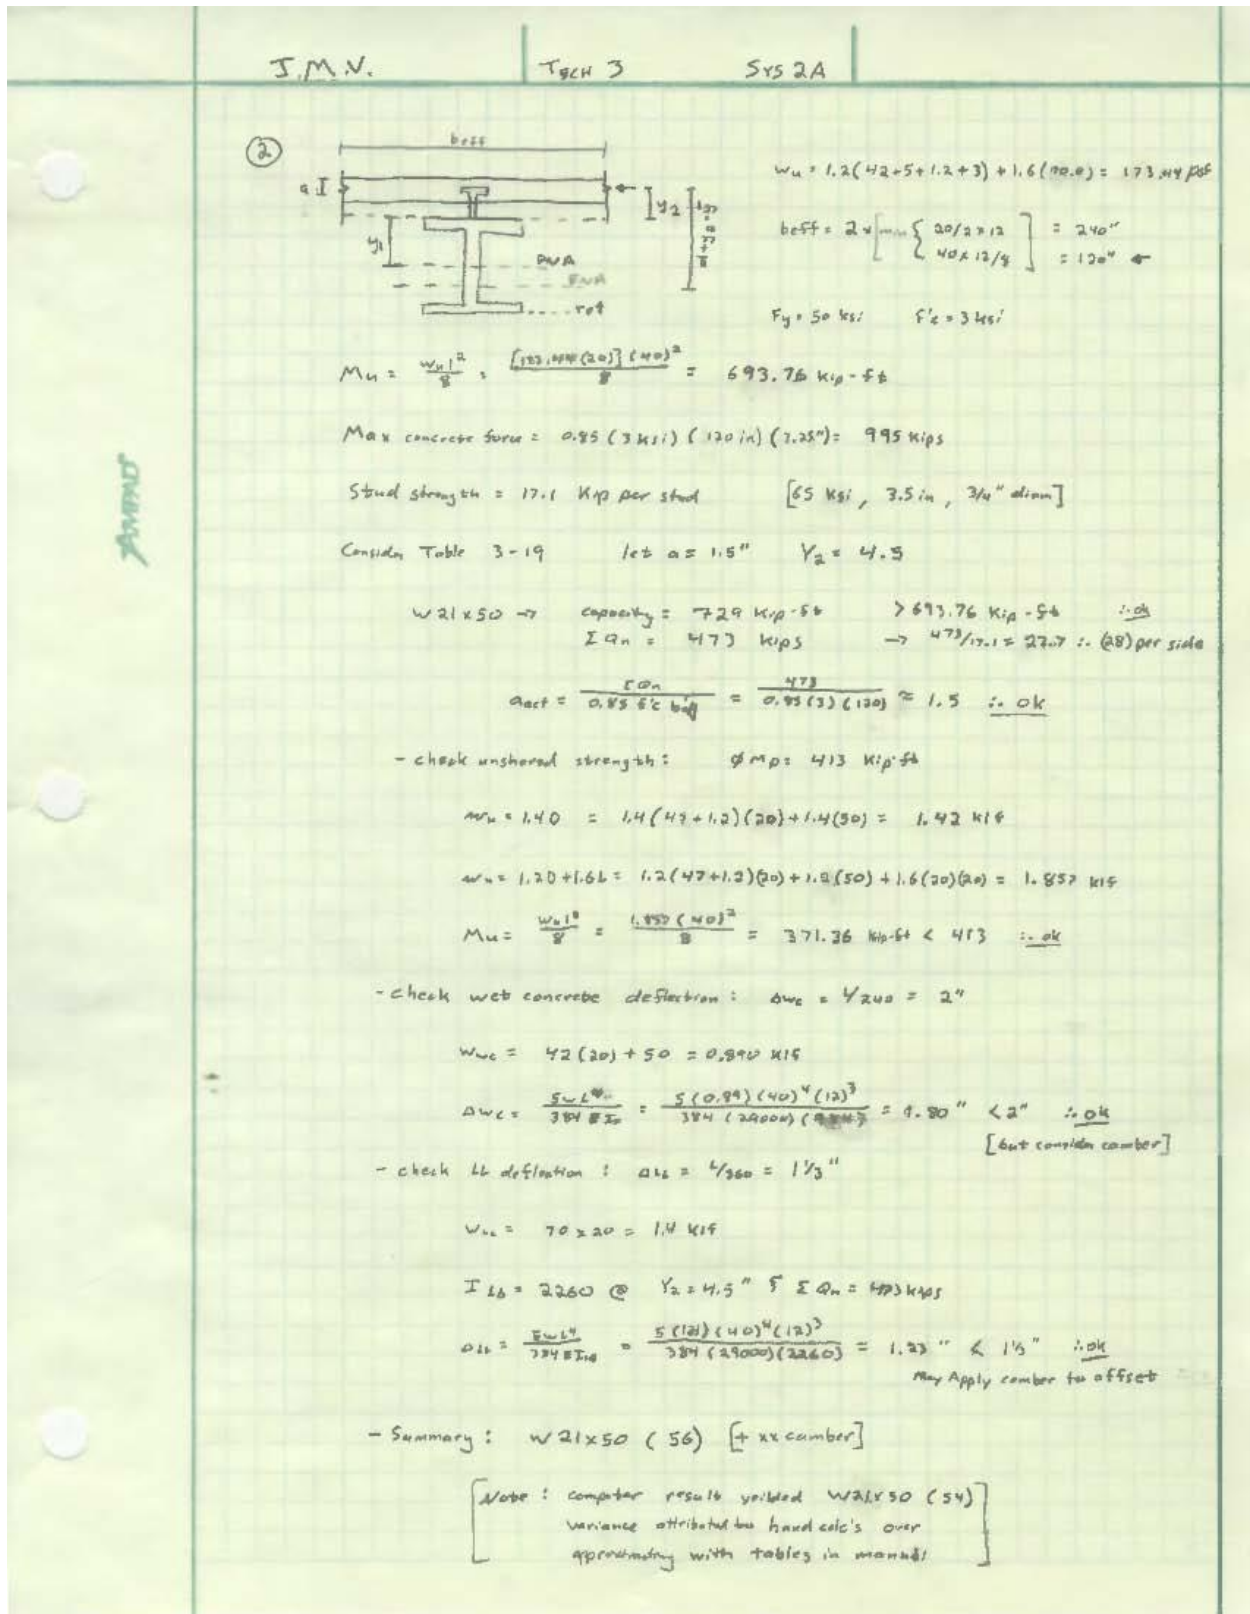 J.M.V. TECH 3 SYS 2A
②
beff
a
y2
y1
PNA
ENA
rot
wu = 1.2(42+5+1.2+3) + 1.6(70.0) = 173.44 psf
beff = 2 x [min { 20/2 x 12 ] = 240"
40 x 12/8 ] = 120" ←
Fy = 50 ksi f'c = 3 ksi
Mu = wul²/8 = [173.44(20)](40)²/8 = 693.76 kip-ft
Max concrete force = 0.85 (3 ksi) (120 in) (3.25") = 995 kips
Stud strength = 17.1 kip per stud [65 ksi, 3.5 in, 3/4" diam]
Consider Table 3-19 let a = 1.5" Y2 = 4.5
W21x50 → capacity = 729 kip-ft > 693.76 kip-ft ∴ ok
ΣQn = 473 kips → 473/17.1 = 27.7 ∴ (28) per side
aact = ΣQn / 0.85 f'c beff = 473 / 0.85(3)(120) ≈ 1.5 ∴ ok
- check unshored strength: ΦMp = 413 kip-ft
wu = 1.4D = 1.4(42+1.2)(20)+1.4(50) = 1.42 klf
wu = 1.2D+1.6L = 1.2(42+1.2)(20)+1.2(50)+1.6(20)(20) = 1.857 klf
Mu = wul²/8 = 1.857(40)²/8 = 371.36 kip-ft < 413 ∴ ok
- check wet concrete deflection: Δwc = l/240 = 2"
wwc = 42(20) + 50 = 0.890 klf
Δwc = 5wL⁴/384EI0 = 5(0.89)(40)⁴(12)³/384(29000)(984) = 1.80" < 2" ∴ ok
[but consider camber]
- check LL deflection: ΔLL = L/360 = 1 1/3"
wLL = 70 x 20 = 1.4 klf
ILB = 2260 @ Y2 = 4.5" & ΣQn = 473 kips
ΔLL = 5wL⁴/384EILB = 5(1.4)(40)⁴(12)³/384(29000)(2260) = 1.23" < 1 1/3" ∴ ok
May Apply camber to offset
- Summary: W21x50 (56) [+ xx camber]
[Note: computer result yeilded W21x50 (54)
variance attributed to hand calc's over
approximating with tables in manual]
AMPAD